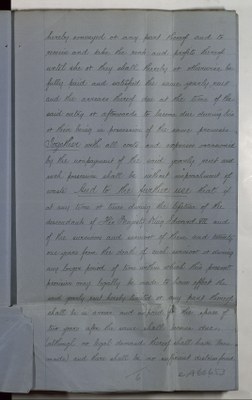 hereby charged or any part thereof and to
receive and take the rents and profits thereof
until she or they shall thereby or otherwise be
fully paid and satisfied the same yearly rent
and the arrears thereof due at the time of the
said entry or afterwards to become due during his
or their being in possession of the same premises
Together with all costs and expenses occasioned
by the nonpayment of the said yearly rent and
such possession shall be without impeachment of
waste And to the further use that if
at any time or times during the lifetime of the
descendants of His Majesty King Edward VII and
of the survivors and survivor of them and twenty
one years from the death of such survivor or during
any longer period of time within which this present
provision may legally be made to have effect the
said yearly rent hereby limited or any part thereof
shall be in arrear and unpaid for the space of
two years after the same shall become due
(although no legal demand thereof shall have been
made) and there shall be no sufficient distress found